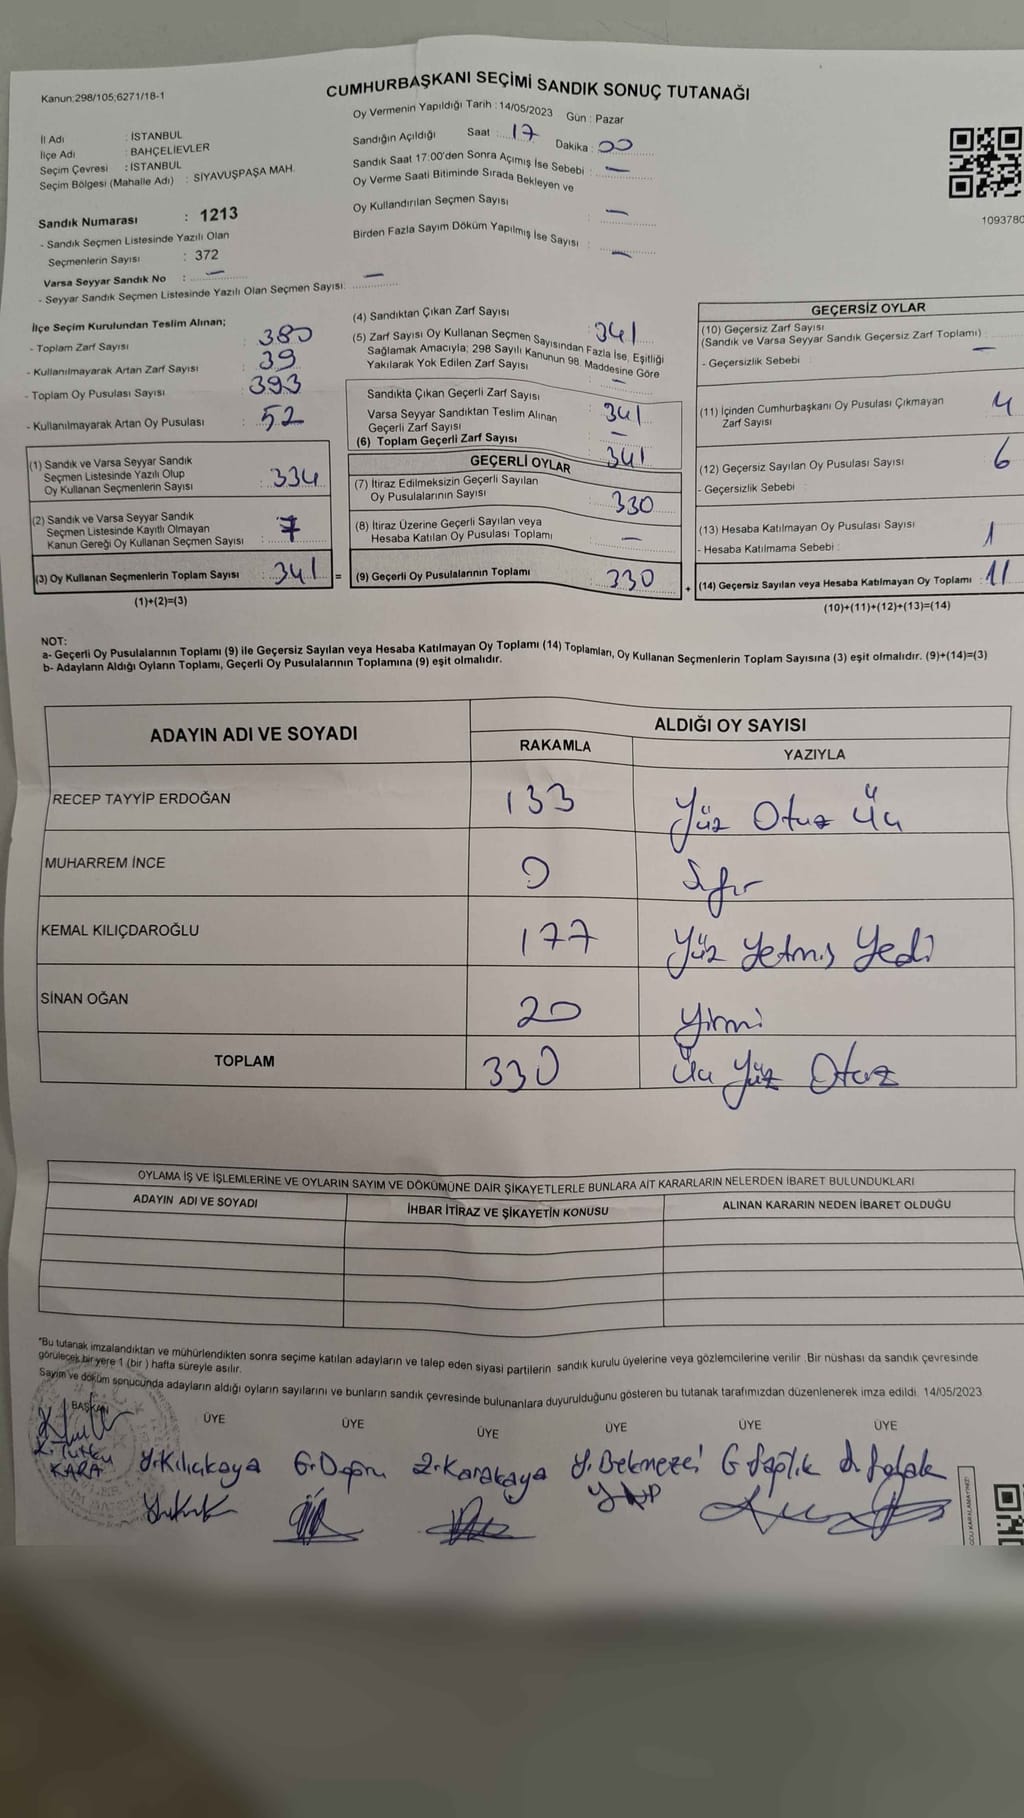 CUMHURBAŞKANI SEÇİMİ SANDIK SONUÇ TUTANAĞI
Kanun;298/105;6271/18-1
Oy Vermenin Yapıldığı Tarih : 14/05/2023 Gün : Pazar
İl Adı : İSTANBUL
İlçe Adı : BAHÇELİEVLER
Seçim Çevresi : İSTANBUL
Seçim Bölgesi (Mahalle Adı) : SİYAVUŞPAŞA MAH.
Sandığın Açıldığı Saat : 17 Dakika : 00
Sandık Saat 17:00'den Sonra Açımış İse Sebebi : —
Oy Verme Saati Bitiminde Sırada Bekleyen ve
Oy Kullandırılan Seçmen Sayısı —
Birden Fazla Sayım Döküm Yapılmış İse Sayısı : —
1093780
Sandık Numarası : 1213
- Sandık Seçmen Listesinde Yazılı Olan
Seçmenlerin Sayısı : 372
Varsa Seyyar Sandık No : —
- Seyyar Sandık Seçmen Listesinde Yazılı Olan Seçmen Sayısı: —
İlçe Seçim Kurulundan Teslim Alınan;
- Toplam Zarf Sayısı : 380
- Kullanılmayarak Artan Zarf Sayısı : 39
- Toplam Oy Pusulası Sayısı : 393
- Kullanılmayarak Artan Oy Pusulası : 52
(1) Sandık ve Varsa Seyyar Sandık
Seçmen Listesinde Yazılı Olup
Oy Kullanan Seçmenlerin Sayısı : 334
(2) Sandık ve Varsa Seyyar Sandık
Seçmen Listesinde Kayıtlı Olmayan
Kanun Gereği Oy Kullanan Seçmen Sayısı : 7
(3) Oy Kullanan Seçmenlerin Toplam Sayısı : 341 =
(1)+(2)=(3)
(4) Sandıktan Çıkan Zarf Sayısı : 341
(5) Zarf Sayısı Oy Kullanan Seçmen Sayısından Fazla İse, Eşitliği
Sağlamak Amacıyla; 298 Sayılı Kanunun 98. Maddesine Göre
Yakılarak Yok Edilen Zarf Sayısı : —
Sandıkta Çıkan Geçerli Zarf Sayısı : 341
Varsa Seyyar Sandıktan Teslim Alınan
Geçerli Zarf Sayısı : —
(6) Toplam Geçerli Zarf Sayısı : 341
GEÇERLİ OYLAR
(7) İtiraz Edilmeksizin Geçerli Sayılan
Oy Pusulalarının Sayısı : 330
(8) İtiraz Üzerine Geçerli Sayılan veya
Hesaba Katılan Oy Pusulası Toplamı : —
(9) Geçerli Oy Pusulalarının Toplamı : 330 +
GEÇERSİZ OYLAR
(10) Geçersiz Zarf Sayısı
(Sandık ve Varsa Seyyar Sandık Geçersiz Zarf Toplamı) : —
- Geçersizlik Sebebi :
(11) İçinden Cumhurbaşkanı Oy Pusulası Çıkmayan
Zarf Sayısı : 4
(12) Geçersiz Sayılan Oy Pusulası Sayısı : 6
- Geçersizlik Sebebi :
(13) Hesaba Katılmayan Oy Pusulası Sayısı : 1
- Hesaba Katılmama Sebebi :
(14) Geçersiz Sayılan veya Hesaba Katılmayan Oy Toplamı : 11
(10)+(11)+(12)+(13)=(14)
NOT:
a- Geçerli Oy Pusulalarının Toplamı (9) ile Geçersiz Sayılan veya Hesaba Katılmayan Oy Toplamı (14) Toplamları, Oy Kullanan Seçmenlerin Toplam Sayısına (3) eşit olmalıdır. (9)+(14)=(3)
b- Adayların Aldığı Oyların Toplamı, Geçerli Oy Pusulalarının Toplamına (9) eşit olmalıdır.
ADAYIN ADI VE SOYADI ALDIĞI OY SAYISI
RAKAMLA YAZIYLA
RECEP TAYYİP ERDOĞAN 133 Yüz Otuz Üç
MUHARREM İNCE 0 Sıfır
KEMAL KILIÇDAROĞLU 177 Yüz Yetmiş Yedi
SİNAN OĞAN 20 Yirmi
TOPLAM 330 Üç Yüz Otuz
OYLAMA İŞ VE İŞLEMLERİNE VE OYLARIN SAYIM VE DÖKÜMÜNE DAİR ŞİKAYETLERLE BUNLARA AİT KARARLARIN NELERDEN İBARET BULUNDUKLARI
ADAYIN ADI VE SOYADI İHBAR İTİRAZ VE ŞİKAYETİN KONUSU ALINAN KARARIN NEDEN İBARET OLDUĞU
"Bu tutanak imzalandıktan ve mühürlendikten sonra seçime katılan adayların ve talep eden siyasi partilerin sandık kurulu üyelerine veya gözlemcilerine verilir. Bir nüshası da sandık çevresinde
görülecek bir yere 1 (bir ) hafta süreyle asılır.
Sayım ve döküm sonucunda adayların aldığı oyların sayılarını ve bunların sandık çevresinde bulunanlara duyurulduğunu gösteren bu tutanak tarafımızdan düzenlenerek imza edildi. 14/05/2023
BAŞKAN ÜYE ÜYE ÜYE ÜYE ÜYE ÜYE
KARA Y.Kılıçkaya G.Doğru Z.Karakaya Y.Bekmezci G.Sağlık